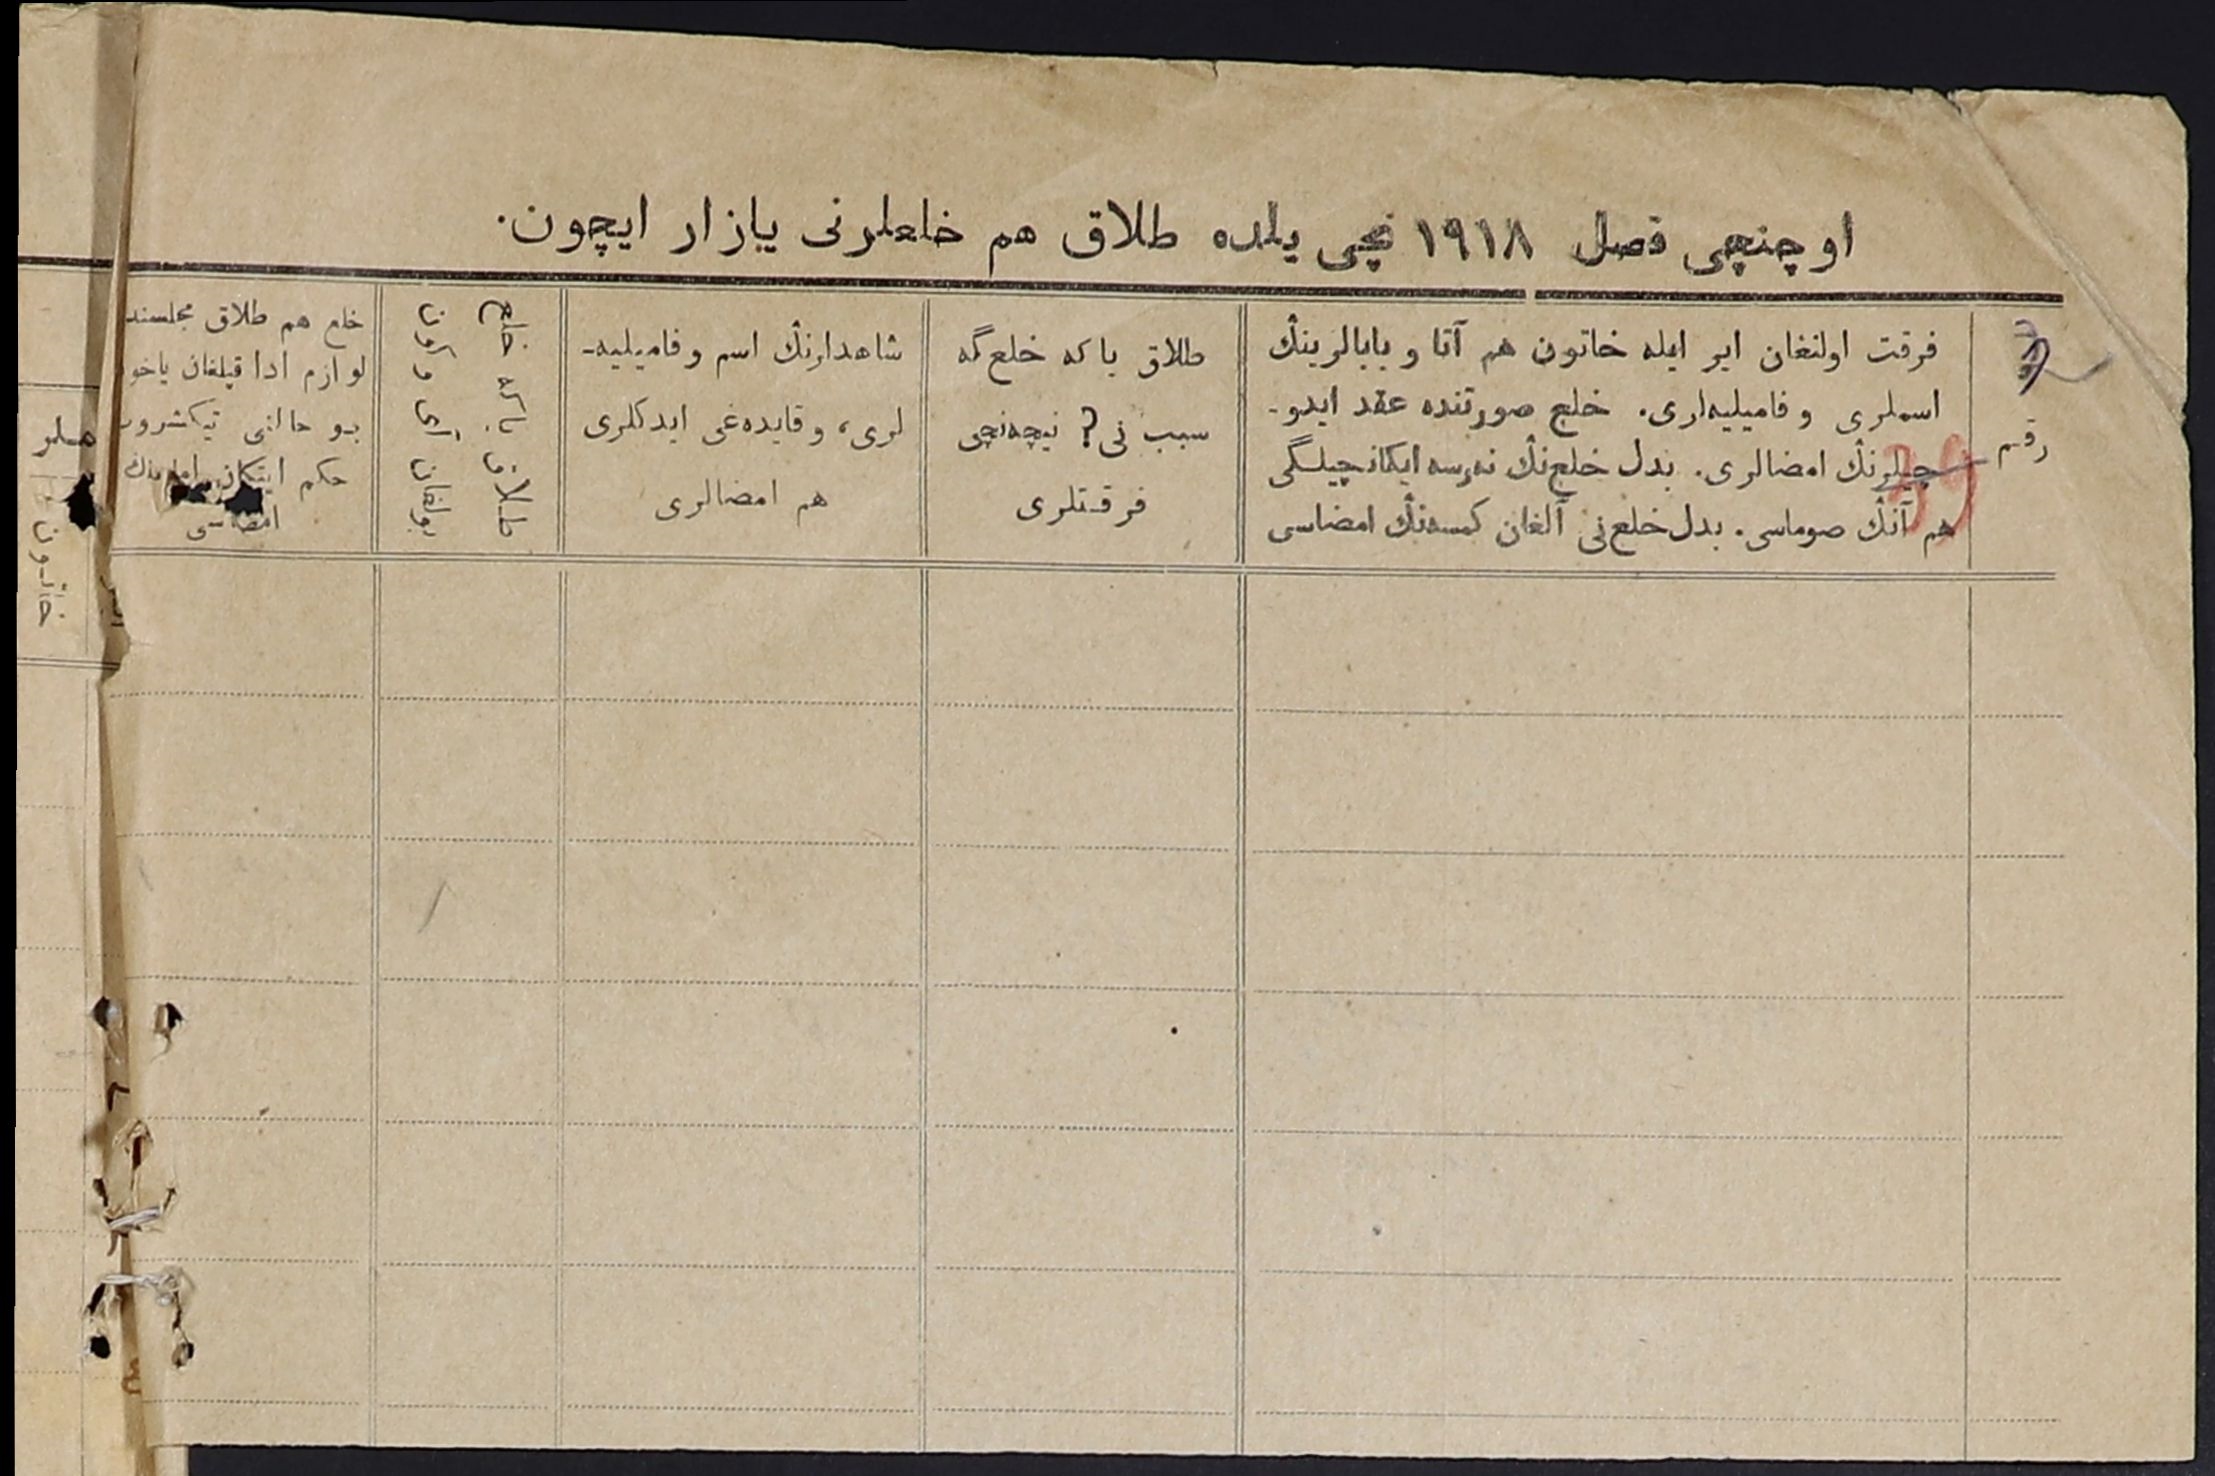 اوچنچی فصل ١٩١٨ نچی یلده طلاق هم خلعلرنی یازار ایچون.
رقم
فرقت اولنغان ایر ایله خاتون هم آتا و بابالرینڭ
اسملری و فامیلیه‌لری. خلع صورتنده عقد ایدو-
چیلرنڭ امضالری. بدل خلع‌نڭ نەرسه ایکانچیلگی
هم آنڭ صوماسی. بدل خلع‌نی آلغان کمسەنڭ امضاسی
طلاق یاکه خلع‌گه
سبب نی؟ نیچه‌نچی
فرقتلری
شاهدلرنڭ اسم و فامیلیه-
لری، و قایده‌غی ایدکلری
هم امضالری
طلاق یاکه خلع
بولغان آی و کون
خلع هم طلاق مجلسنده
لوازم ادا قیلغان یاخود
بو حالنی تیکشروب
حکم ایتکان امامنڭ
امضاسی
خاتون
39